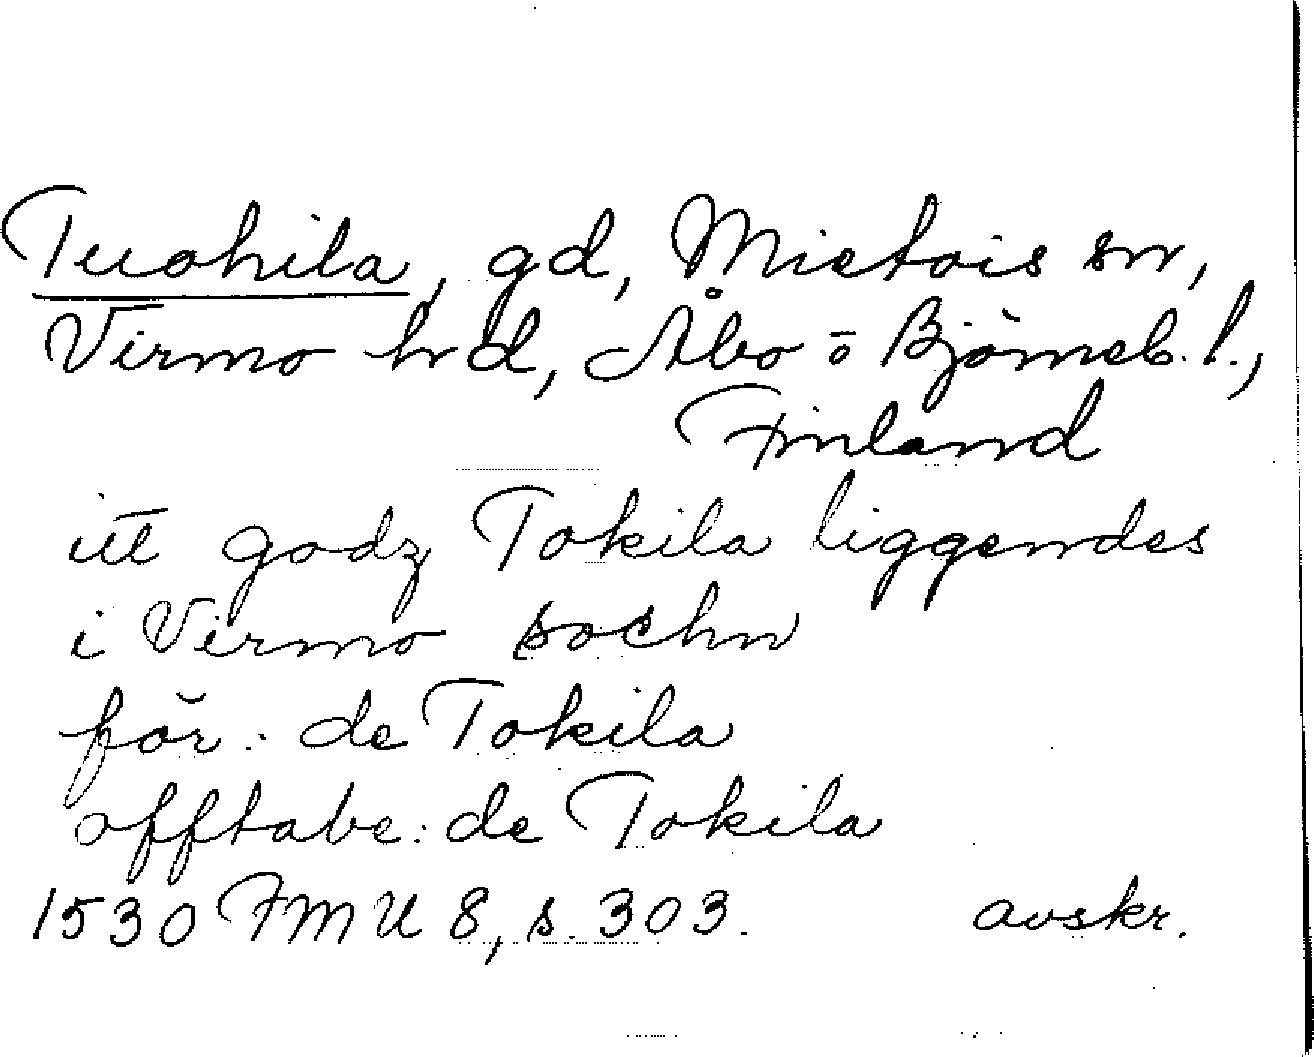 Tuohila, gd, Mietois sn,
Virmo hd, Åbo o Björneb. l.,
Finland
itt godz Tokila liggendes
i Virmo sochn
för: de Tokila
offtabe: de Tokila
1530 FMU 8, s. 303. avskr.